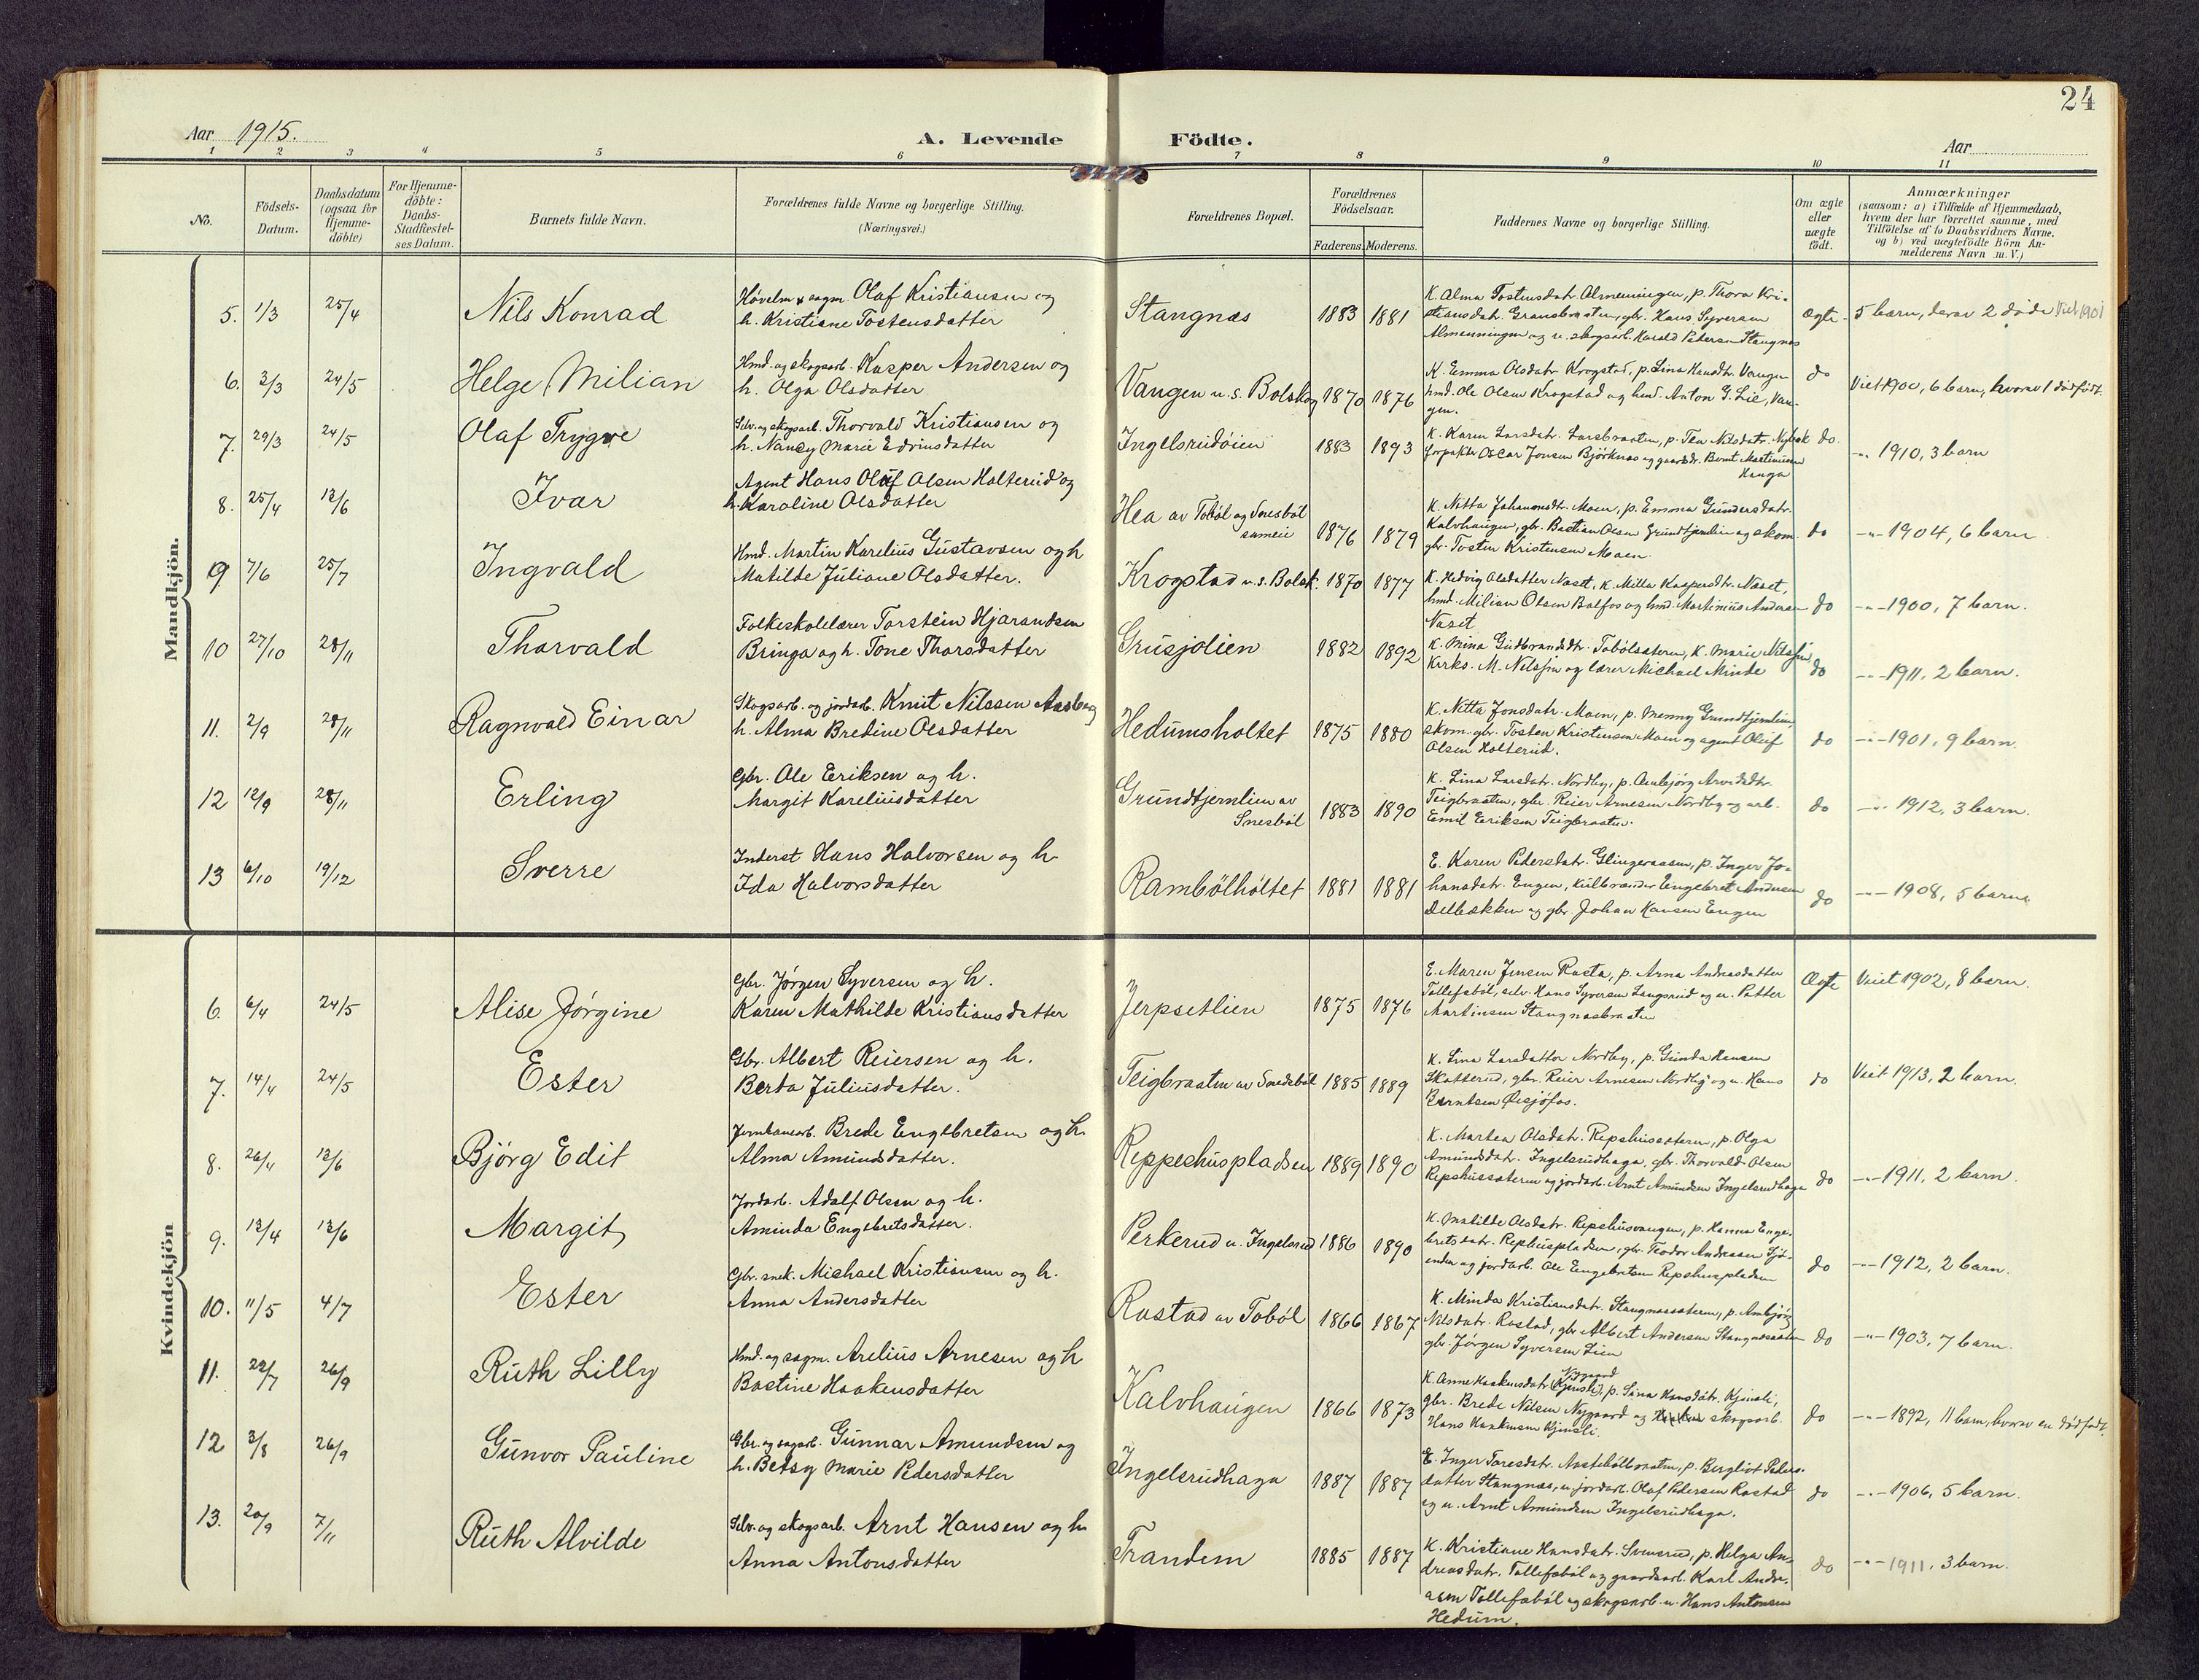 24
Aar 1915.
A. Levende
Födte.
Aar
1 2 3 4 5 6 7 8 9 10 11
No.
Födsels-
Datum.
Daabsdatum
(ogsaa for
Hjemme-
döbte)
For Hjemme-
döbte:
Daabs-
Stadfæstel-
ses Datum.
Barnets fulde Navn.
Forældrenes fulde Navne og borgerlige Stilling.
(Næringsvei.)
Forældrenes Bopæl.
Forældrenes
Födselsaar.
Faderens. Moderens.
Faddernes Navne og borgerlige Stilling.
Om ægte
eller
uægte
födt.
Anmærkninger
(saasom: a) i Tilfælde af Hjemmedaab,
hvem der har forrettet samme, med
Tilföielse af to Daabsvidners Navne.
og b) ved uægtefödte Börn An-
melderens Navn m. V.)
Mandkjön.
5. 1/3 25/4
Nils Konrad
Hövelm & sagm. Olaf Kristiansen og
h. Kristiane Tostensdatter
Stangnæs
1883 1881
K. Alma Tostensdatr. Almenningen, p. Thora Kri-
stiansdatr. Granebraaten, gbr. Hans Syversen
Almenningen og u. skogsarb. Harald Pedersen Stangnæs
ægte
5 barn, derav 2 döde Viet 1901
6. 3/3 24/5
Helge Milian
Hmd. og skogsarb. Kasper Andersen og
h. Olga Olsdatter
Vangen u. s. Bolskog
1870 1876
K. Emma Olsdatr. Krogstad, p. Lina Hansdtr. Vangen
hmd. Ole Olsen Krogstad og hmd. Anton G. Lie, Van-
gen.
do
Viet 1900, 6 barn, hvorav 1 dödfödt.
7. 29/3 24/5
Olaf Trygve
Selv. og skogsarb. Thorvald Kristiansen og
h. Nancy Marie Edvinsdatter
Ingelsrudöien
1883 1893
K. Karen Larsdatr. Larsbraaten, p. Tea Nilsdatr.
forpakter Oscar Jonsen Björknæs og gaardbr. Bernt Martinsen
Hauga
do.
-"- 1910, 3 barn
8. 25/4 13/6
Ivar
Agent Hans Oluf Olsen Holterud og
h. Karoline Olsdatter
Hea av Toböl og Snesböl
sameie
1876 1879
K. Netta Johansdtr. Moen, p. Emma Gundersdatr.
Kalvhaugen, gbr. Bastian Olsen Grundtjernlien og skom.
gbr. Tosten Kristensen Moen
do
-"- 1904, 6 barn
9 7/6 25/7
Ingvald
Hmd. Martin Karelius Gustavsen og h
Matilde Juliane Olsdatter.
Krogstad u. s. Bolsk.
1870 1877
K. Hedvig Olsdatter Næset, K. Milla Kaspersdtr. Næset,
hmd. Milian Olsen Bolfos og hmd. Martinius Andersen
Næset
do
-"- 1900, 7 barn.
10 27/10 28/11
Thorvald
Folkeskolelærer Torstein Hjarandsen
Bringa og h. Tone Thorsdatter
Grusjölien
1882 1892
K. Mina Gudbrandsdtr. Tobölsæteren, K. Marie
Kirks. M. og lærer Michael Minde
do
-"- 1911, 2 barn.
11. 2/9 28/11
Ragnvald Einar
Skogsarb. og jordarb. Knut Nilssen Aasby og
h. Alma Bredine Olsdatter
Hedumsholtet
1875 1880
K. Netta Jonsdatr. Moen, p. Menny Grundtjernlien,
skom. gbr. Tosten Kristensen Moen og agent Oluf
Olsen Holterud.
do
-"- 1901, 9 barn.
12 12/9 28/11
Erling
Gbr. Ole Eriksen og h.
Margit Kareliusdatter
Grundtjernlien av
Snesböl
1883 1890
K. Lina Larsdatr. Nordby, p. Aulbjörg Arvidsdtr.
Teigbraaten, gbr. Reier Arnesen Nordby og arb.
Emil Eriksen Teigbraaten.
do
-"- 1912, 3 barn.
13 6/10 19/12
Sverre
Inderst Hans Halvorsen og h.
Ida Halvorsdatter
Rambölholtet
1881 1881
E. Karen Pedersdatr. Slingeraasen, p. Inger Jo-
hansdatr. Engen, Kulbrænder Engebret Andersen
og gbr. Johan Hansen Engen
do
-"- 1908, 5 barn
Kvindekjön
6. 6/4 24/5
Alise Jörgine
Gbr. Jörgen Syversen og h.
Karen Mathilde Kristiansdatter
Jerpsetlien
1875 1876
E. Maren Jensen Rasta, p. Arna Andreasdatter
Tollefsböl, selv. Hans Syversen Langsrud og u. Petter
Martinsen Stangnæsbraaten
Ægte
Viet 1902, 8 barn.
7. 14/4 24/5
Ester
Gbr. Albert Reiersen og h.
Berta Juliusdatter.
Teigbraaten av Snesböl
1885 1889
K. Lina Larsdatter Nordby, p. Gunda Hansen
Skotterud, gbr. Reier Arnesen Nordby og u. Hans
Berntsen Öisjöfos.
do
Viet 1913, 2 barn.
8. 26/4 13/6
Björg Edit
Jernbanearb. Brede Engebretsen og h.
Alma Amundsdatter.
Reppeshuspladsen
1889 1890
K. Martea Olsdatr. Repshussæteren, p. Olga
Amundsdatr. Ingelsrudhaga, gbr. Thorvald Olsen
Repshussæteren og jordarb. Arnt Amundsen Ingelsrudhaga
do
-"- 1911, 2 barn.
9. 13/4 13/6
Margit
Jordarb. Adolf Olsen og h.
Aminda Engebretsdatter.
Perkerud u. Ingelsrud
1886 1890
K. Matilde Olsdatr. Repshusvangen, p. Hanna Enge-
bretsdatr. Repshuspladsen, gbr. Teodor Andreasen Sjö-
enden og jordarb. Ole Engebretsen Repshuspladsen
do
-"- 1912, 2 barn.
10. 11/5 4/7
Ester
Gbr. snek. Michael Kristiansen og h.
Anna Andersdatter
Rastad av Toböl
1866 1867
K. Minda Kristiansdatr. Stangnæssæteren, p. Ambjörg
Nilsdatr. Rastad, gbr. Albert Andersen Stangnæssæteren
gbr. Jörgen Syversen Lien
do
-"- 1903, 7 barn.
11. 22/7 26/9
Ruth Lilly
Hmd. og sagm. Arelius Arnesen og h
Bastine Haakensdatter
Kalvhaugen
1866 1873
Nygaard
K. Anne Haakensdatr. (Kjensli), p. Lina Hansdatr. Kjensli,
gbr. Brede Nilsen Nygaard og skogsarb.
Hans Haakensen Kjensli.
do
-"- 1892, 11 barn, hvorav en dödfödt.
12 3/8 26/9
Gunvor Pauline
Gbr. og sagarb. Gunnar Amundsen og
h. Betsy Marie Pedersdatter
Ingelsrudhaga
1887 1887
E. Inger Toresdatr. Nasteböl braaten, p. Bergliot Peders-
datter Stangnæs, u. jordarb. Olaf Pedersen Rastad
og u. Arnt Amundsen Ingelsrudhaga.
do
-"- 1906, 5 barn.
13. 20/9 7/11
Ruth Alvilde
Selv. og skogsarb. Arnt Hansen og h
Anna Antonsdatter
Trandem
1885 1887
K. Kristiane Hansdatr. p. Helga An-
dreasdatr. Tollefsböl og gaardsarb. Karl Andre-
asen Tollefsböl og skogsarb. u. Hans Antonsen
Hedum.
do
-"- 1911, 3 barn.